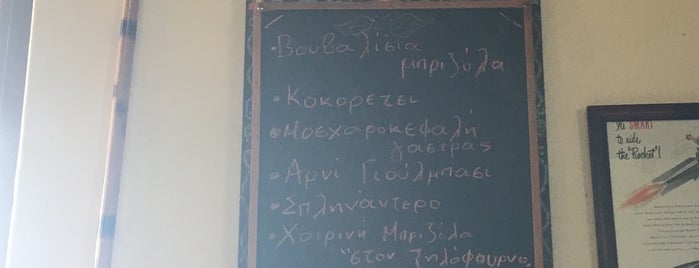 • Βουβαλίσια
μπριζόλα
• Κοκορέτσι
• Μοσχαροκεφαλή
γάστρας
• Αρνί Γιούλμπασι
• Σπληνάντερο
• Χοιρινή Μπριζόλα
"στον ξηλόφουρνο
SMART
to ride
the "Rocket"!